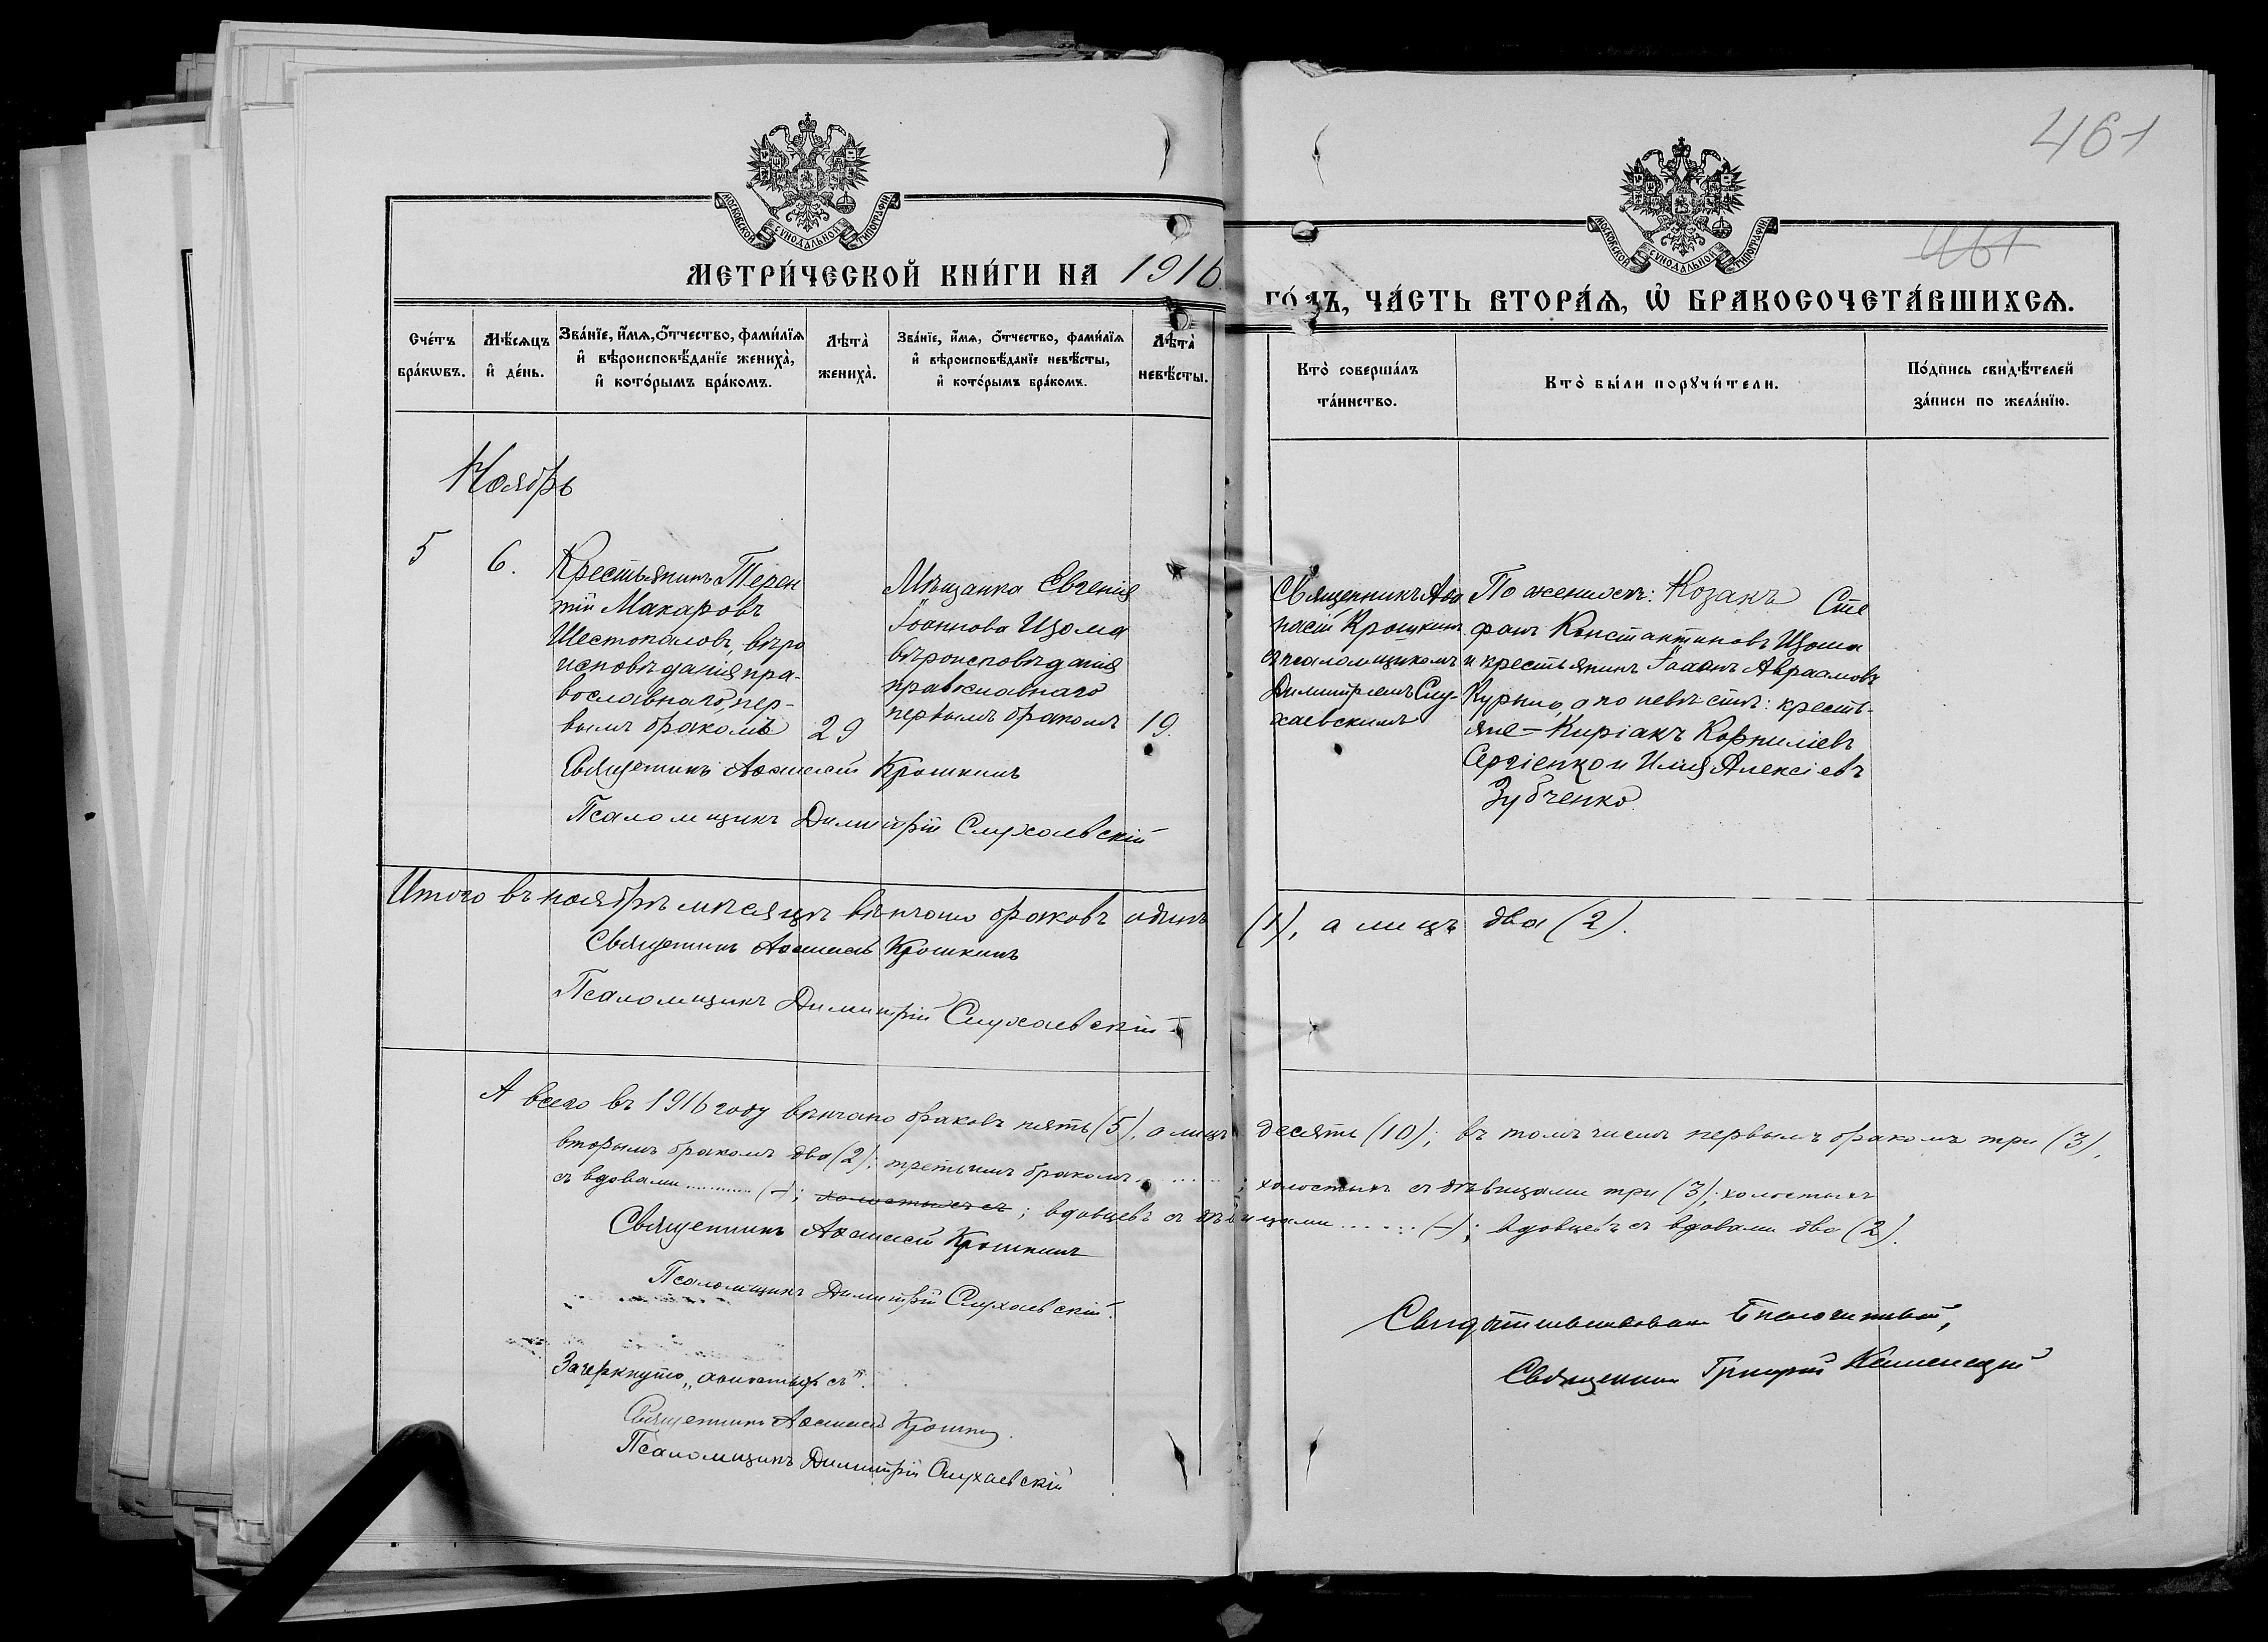 461
461
МОСКОВСКОЙ СѴНОДАЛЬНОЙ ТИПОГРАФІИ
МОСКОВСКОЙ СѴНОДАЛЬНОЙ ТИПОГРАФІИ
МЕТРИ́ЧЕСКОЙ КНИ́ГИ НА 1916
ГО́ДЪ, ЧА́СТЬ ВТОРА́Ѧ, Ѽ БРАКОСОЧЕТА́ВШИХСѦ.
Сче́тъ
бра́кѡвъ.
Мѣ́сѧцъ
и҆ де́нь.
Зва́нїе, и҆́мѧ, ѻ҆́тчество, фами́лїѧ
и҆ вѣроисповѣ́данїе жениха̀,
и҆ кото́рымъ бра́комъ.
Лѣта̀
жениха̀.
Зва́нїе, и҆́мѧ, ѻ҆́тчество, фами́лїѧ
и҆ вѣроисповѣ́данїе невѣ́сты,
и҆ кото́рымъ бра́комъ.
Лѣта̀
невѣ́сты.
Кто̀ соверша́лъ
та́инство.
Кто̀ бы́ли порꙋчи́тели.
По́дпись свидѣ́телей
за́писи по жела́нїю.
Ноябрь
5
6.
Крестьянинъ Терен
тій Макаровъ
Шестопаловъ, вѣро
исповѣданія пра-
вославнаго, пер-
вымъ бракомъ
29
Мѣщанка Евгенія
Іоаннова Цома
вѣроисповѣданія
православнаго
первымъ бракомъ
19.
Священникъ Аѳа
насій Крошкинъ
съ псаломщикомъ
Димитріемъ Слу-
хаевскимъ
По женихѣ: Козакъ Сте
фанъ Константиновъ Цома
и крестьянинъ Іоаннъ Авраамовъ
Курило, а по невѣстѣ: кресть-
яне - Киріакъ Корниліевъ
Сергіенко и Илія Алексіевъ
Зубченко.
Священникъ Аѳанасій Крошкинъ
Псаломщикъ Димитрій Слухаевскій
Итого въ ноябрѣ мѣсяцѣ вѣнчано браковъ одинъ (1), а лицъ два (2).
Священникъ Аѳанасій Крошкинъ
Псаломщикъ Димитрій Слухаевскій
А всего въ 1916 году вѣнчано браковъ пять (5), а лицъ десять (10); въ томъ числѣ первымъ бракомъ три (3),
вторымъ бракомъ два (2); третьимъ бракомъ ........ ; холостыхъ съ дѣвицами три (3); холостыхъ
съ вдовами ........ (-); холостыхъ съ ; вдовцевъ съ дѣвицами ...... (-); вдовцевъ съ вдовами два (2).
Священникъ Аѳанасій Крошкинъ
Псаломщикъ Димитрій Слухаевскій.
Зачеркнуто „холостыхъ съ".
Священникъ Аѳанасій Крошкинъ.
Псаломщикъ Димитрій Слухаевскій
Благочинный,
Священникъ Григорій